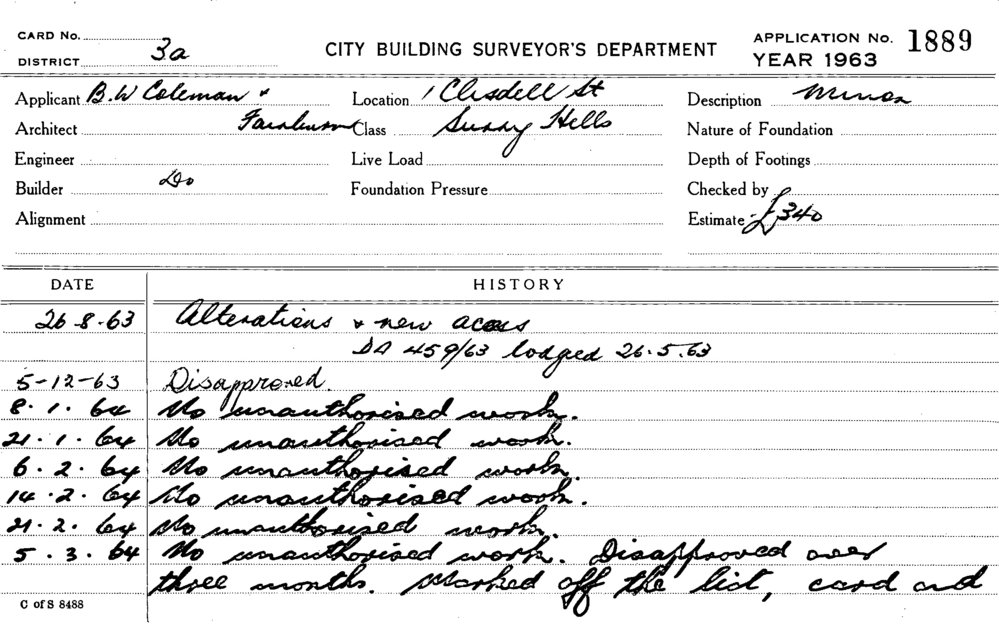 CARD No.
DISTRICT 3a
CITY BUILDING SURVEYOR'S DEPARTMENT
APPLICATION No. 1889
YEAR 1963
Applicant B.W Coleman &
Location 1 Clisdell St
Description Minor
Architect
Class Surry Hills
Nature of Foundation
Engineer
Live Load
Depth of Footings
Builder Do
Foundation Pressure
Checked by
Alignment
Estimate £340
DATE HISTORY
26 8.63 Alterations & new access
DA 459/63 lodged 26.5.63
5-12-63 Disapproved.
8.1.64 No unauthorised work.
21.1.64 No unauthorised work.
6.2.64 No unauthorised work.
14.2.64 No unauthorised work.
21.2.64 No unauthorised work.
5.3.64 No unauthorised work. Disapproved over
three months. Marked off the list, card and
C of S 8488